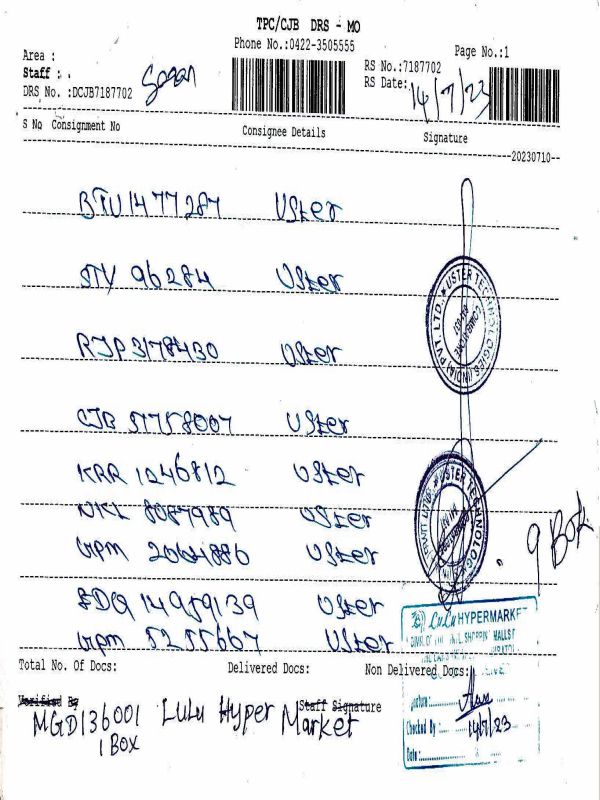 TPC/CJB DRS - MO
Phone No.:0422-3505555
Page No.:1
Area :
Staff :
DRS No. :DCJB7187702
RS No.:7187702
RS Date:
14/7/23
S No Consignment No Consignee Details Signature
20230710
BTU 1477287 Uster
STY 96284 Uster
RJP 3178430 Uster
CJB 51758007 Uster
KRR 1246812 Uster
NKL 8087989 Uster
2064886 Uster
EDQ 14959139 Uster
5255667 Uster
USTER TECHNOLOGIES (INDIA) PVT. LTD.
COIMBATORE
USTER TECHNOLOG
9 Box
LuLu HYPERMARKET
Total No. Of Docs: Delivered Docs: Non Delivered Docs:
Verified By Staff Signature
MGD136001 LuLu Hyper Market
1 BOX
Checked By :
14/7/23
Date :